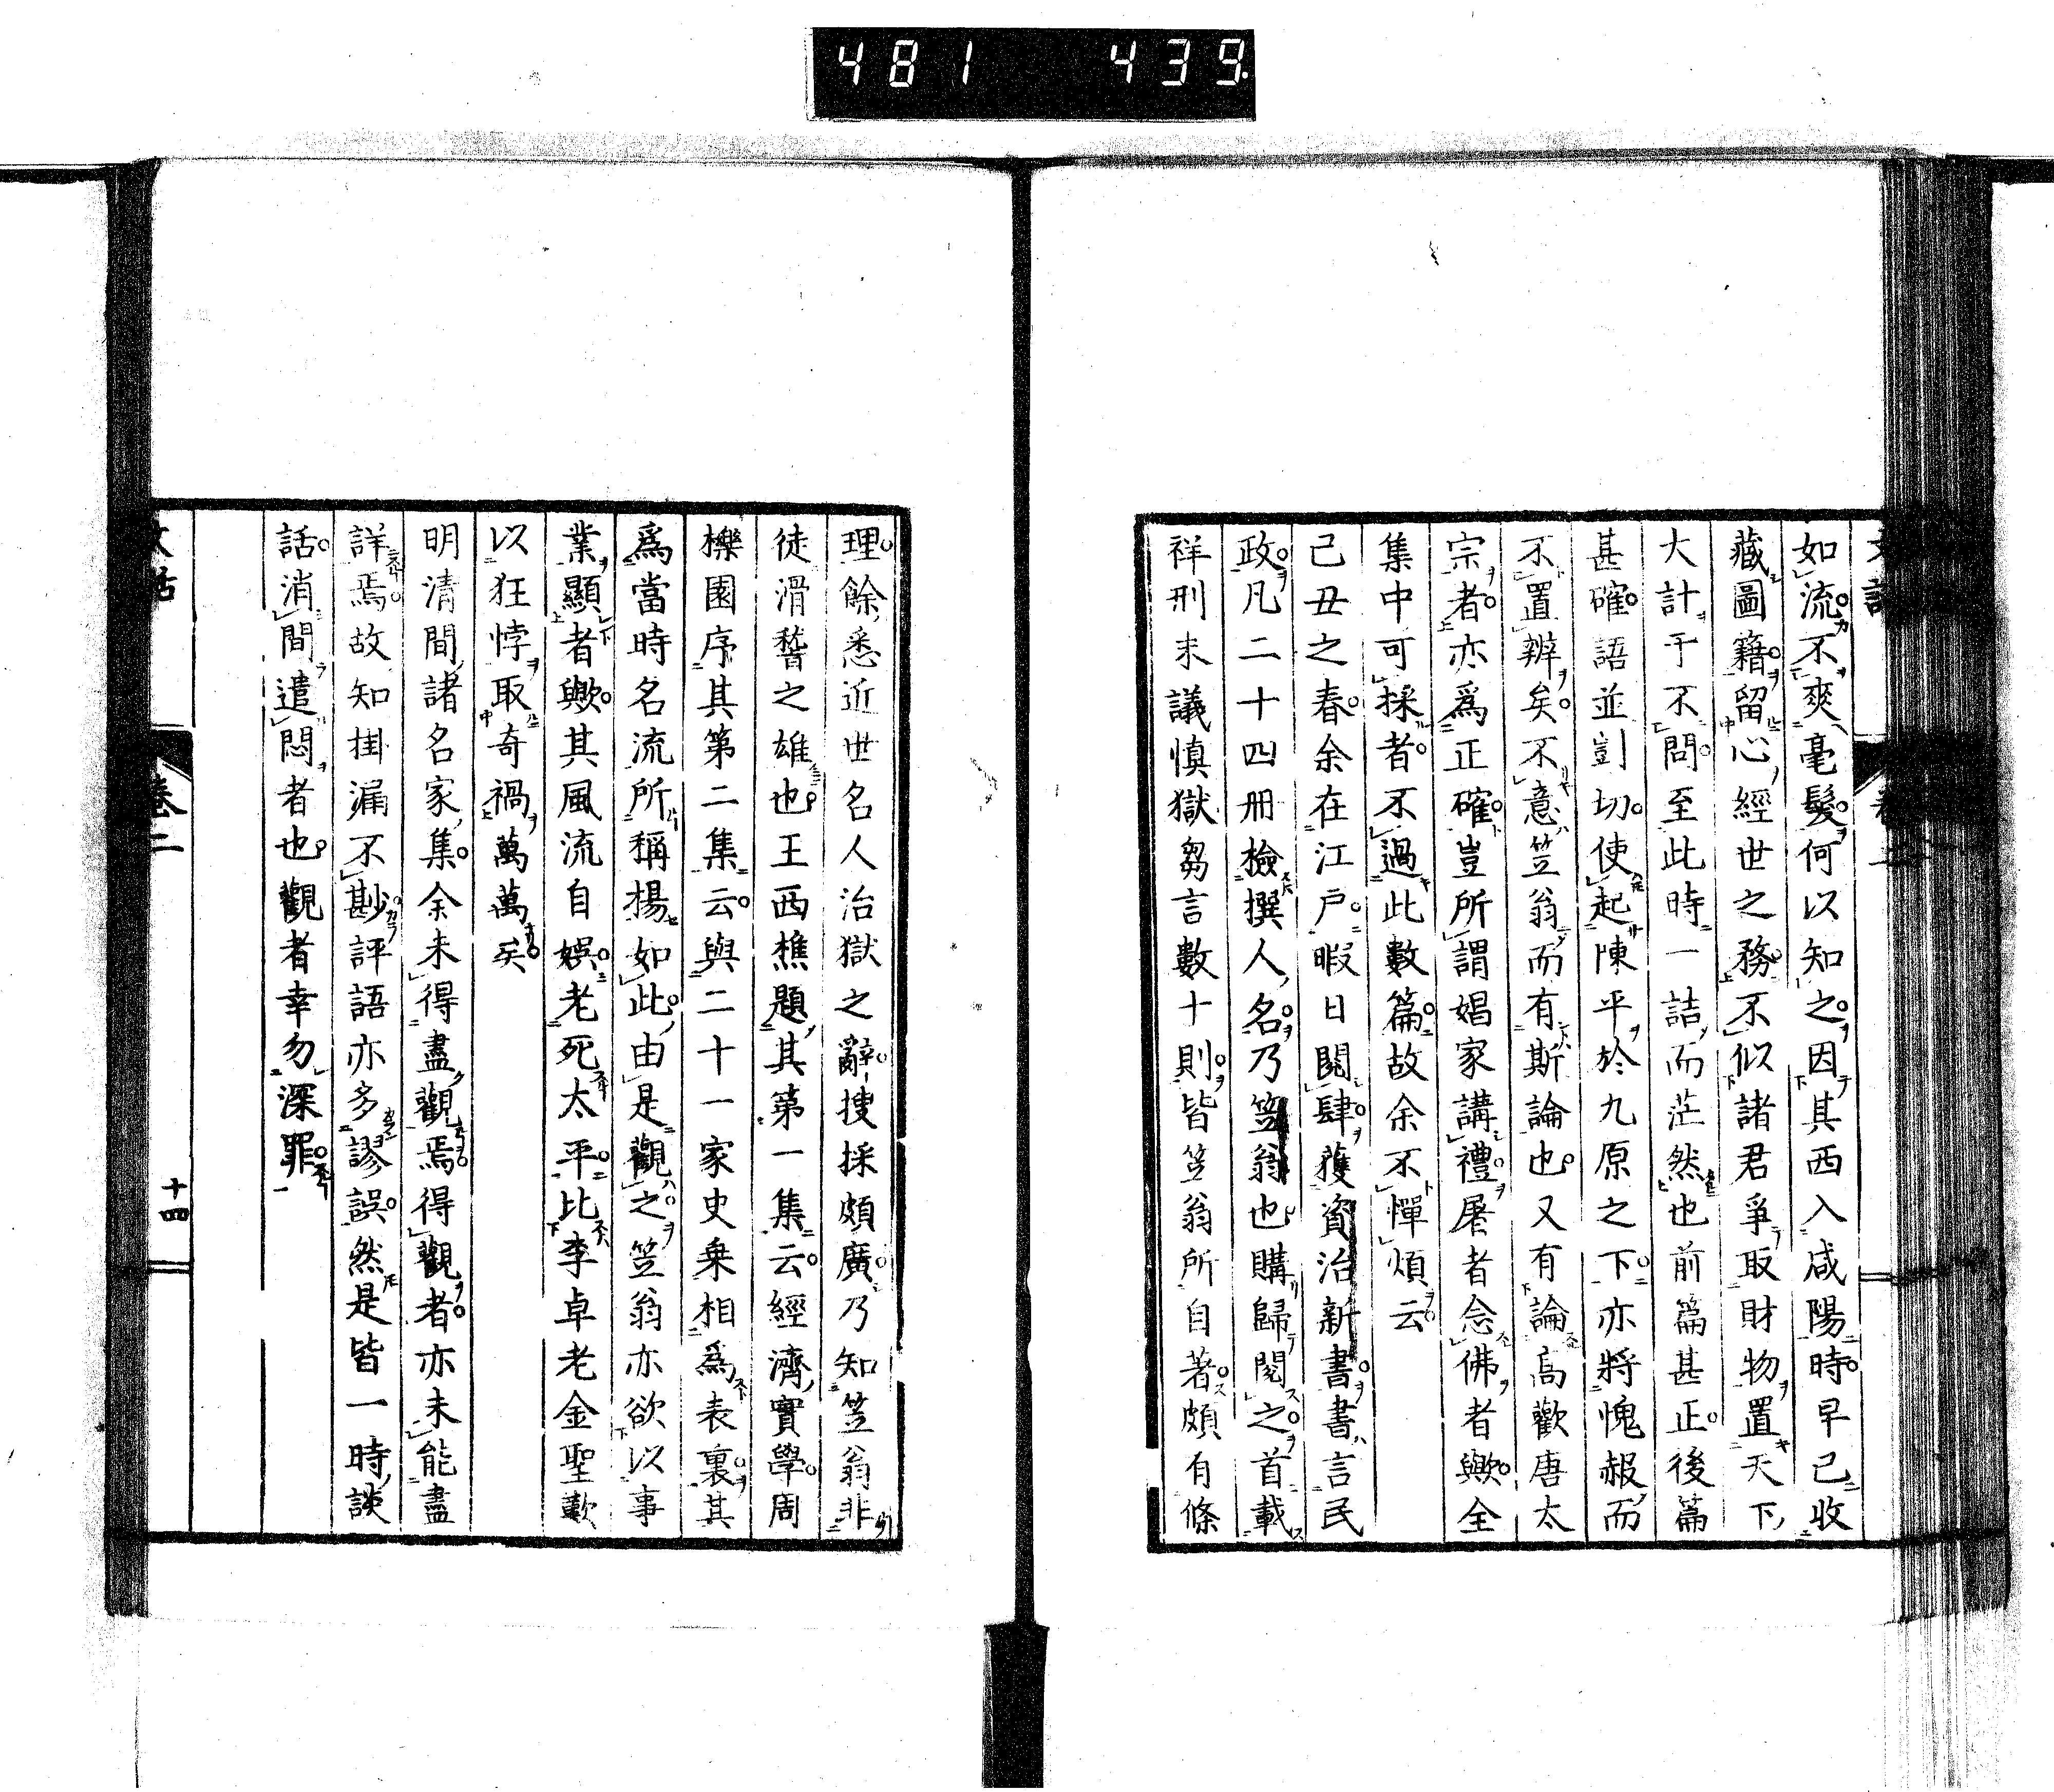 481 439
如流不爽毫髮何以知之因其西入咸陽時早已收
藏圖籍留心經世之務不似諸君爭取財物置天下
大計于不問至此時一詰而茫然也前篇甚正後篇
甚確語並剴切使起陳平於九原之下亦將愧赧而
不置辨矣不意笠翁而有斯論也又有論高歡唐太
宗者亦爲正確豈所謂娼家講禮屠者念佛者歟全
集中可採者不過此數篇故余不憚煩云
己丑之春余在江戸暇日閱肆獲資治新書書言民
政凡二十四册檢撰人名乃笠翁也購歸閱之首載
祥刑末議慎獄芻言數十則皆笠翁所自著頗有條
理餘悉近世名人治獄之辭搜採頗廣乃知笠翁非
徒滑稽之雄也王西樵題其第一集云經濟實學周
櫟園序其第二集云與二十一家史乗相爲表裏其
爲當時名流所稱揚如此由是觀之笠翁亦欲以事
業顯者歟其風流自娯老死太平比李卓老金聖歎
以狂悖取奇禍萬萬矣
明清間諸名家集余未得盡觀焉得觀者亦未能盡
詳焉故知掛漏不尠評語亦多謬誤然是皆一時談
話消間遣悶者也觀者幸勿深罪
文話 卷二 十四